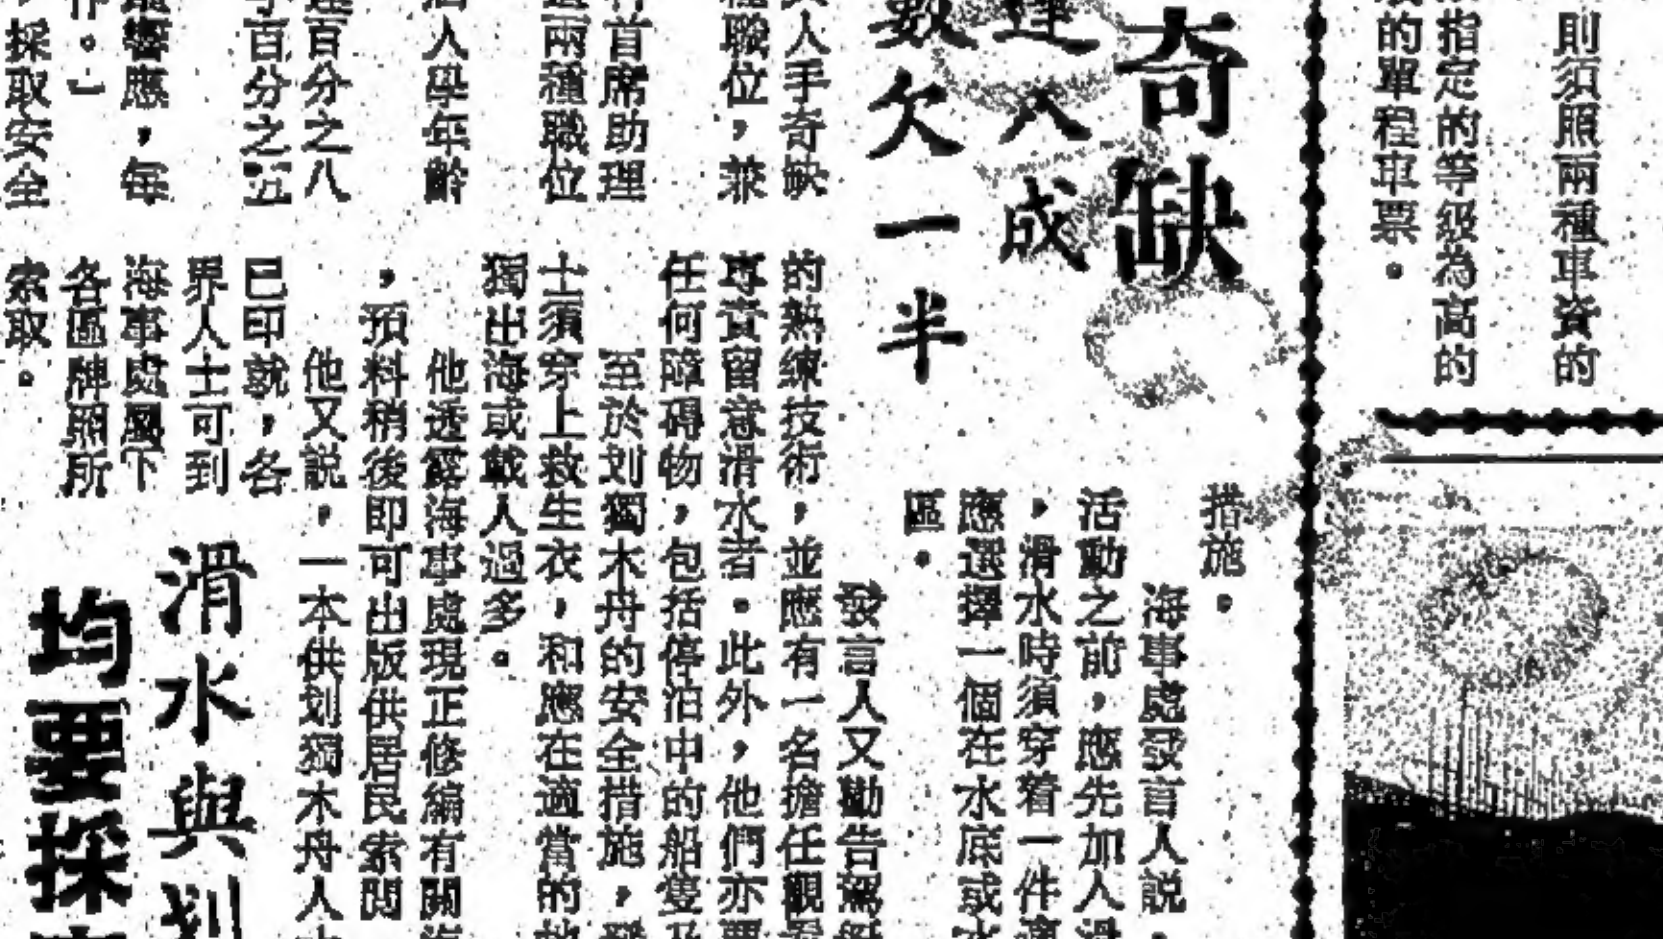 則須照兩種車資的
指定的等級為高的
的單程車票。
奇缺
達八成
數欠一半
人手奇缺
職位，兼
首席助理
兩種職位
人學年齡
百分之八
百分之五
響應，每
作。」
採取安全
措施。
海事處發言人説，
活動之前，應先加入滑
，滑水時須穿着一件
應選擇一個在水底或水
區。
發言人又勸告駕艇
的熟練技術，並應有一名擔任觀
專責留意滑水者。此外，他們亦要
任何障碍物，包括停泊中的船隻及
至於划獨木舟的安全措施，
士須穿上救生衣，和應在適當的地
獨出海或載人過多。
他透露海事處現正修編有關海
，預料稍後即可出版供居民索閱
他又説，一本供划獨木舟人士
已印就，各
界人士可到
海事處屬下
各區牌照所
索取。
滑水與划
均要採